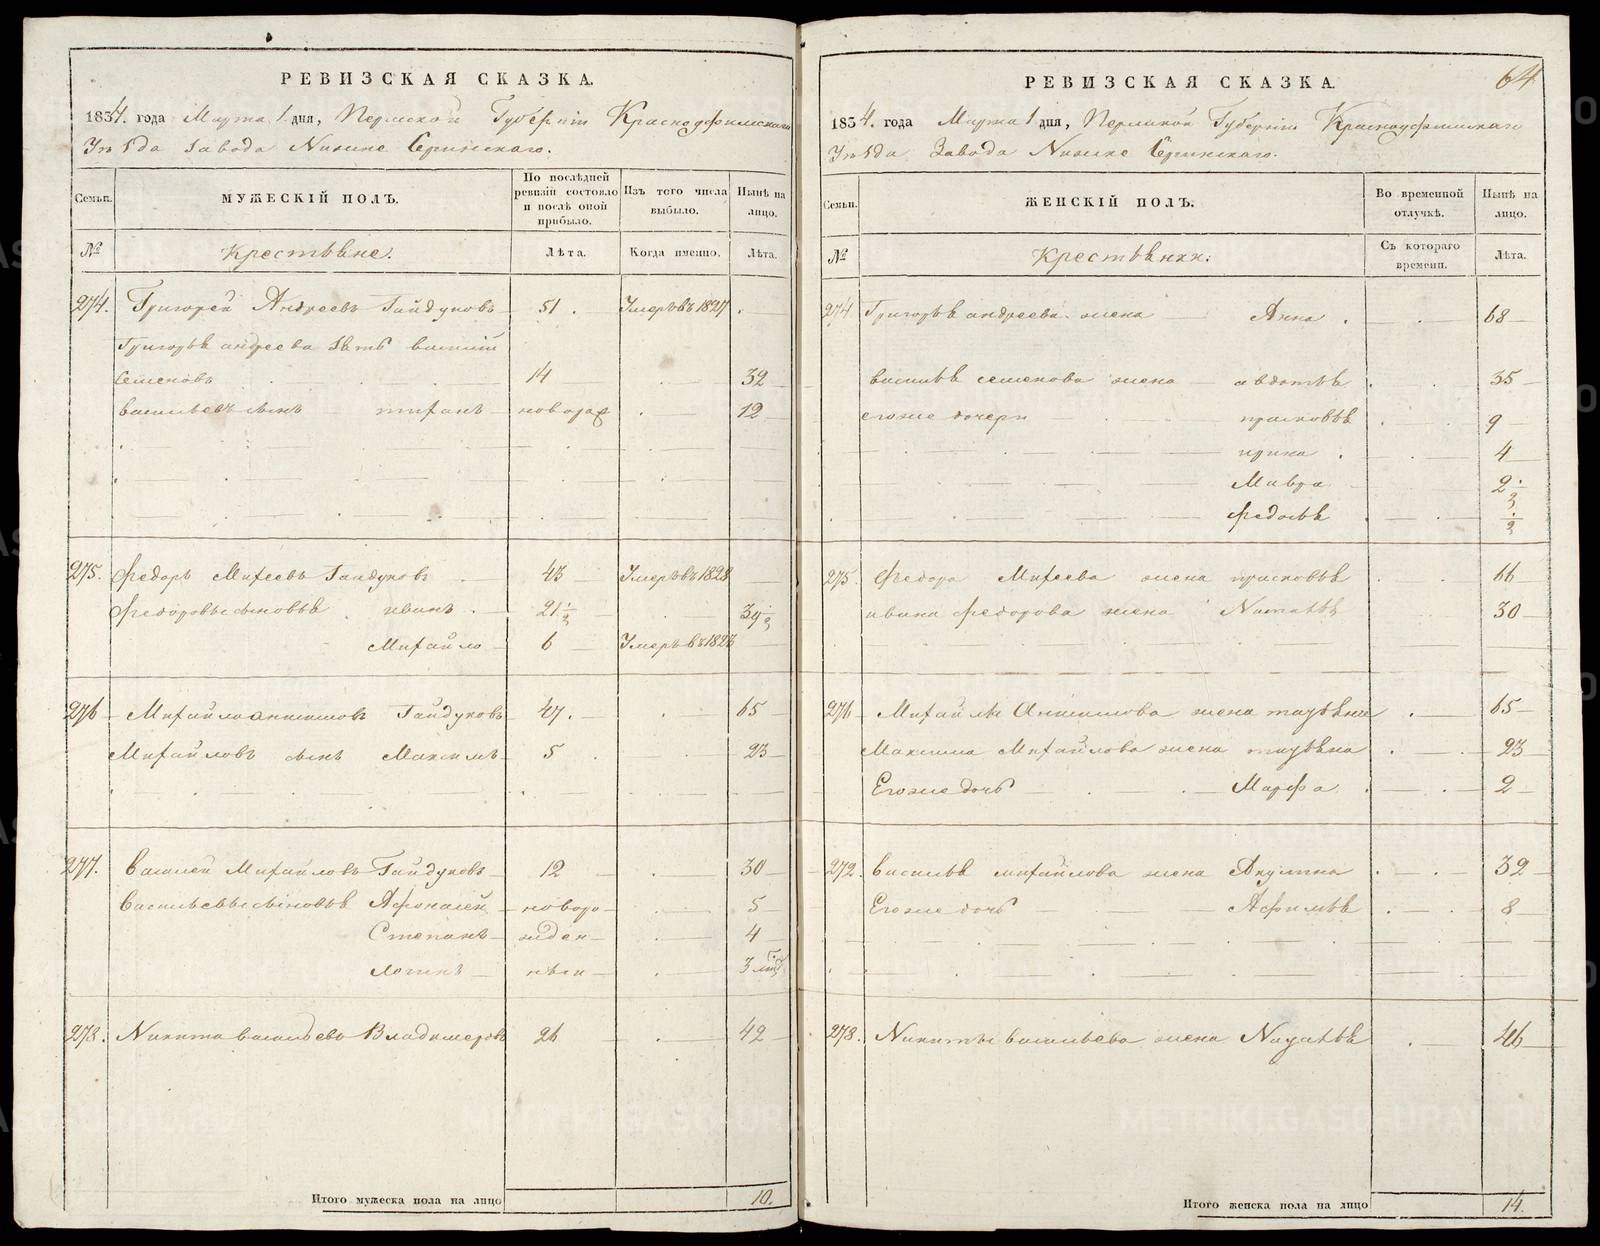 РЕВИЗСКАЯ СКАЗКА.
1834. года Марта 1 дня, Пермской Губерніи Красноуфимскаго
Уѣзда Завода Нижне Сергинскаго.
Семьи.
МУЖЕСКІЙ ПОЛЪ.
По послѣдней ревизіи состояло и послѣ оной прибыло.
Изъ того числа выбыло.
Нынѣ на лицо.
№
Крестьяне.
Лѣта.
Когда именно.
Лѣта.
274. Григорей Андреевъ Гайдуковъ 51. Умеръ въ 1827
Григорья андреева зять василій
семеновъ 14 32
васильевъ сынъ новорож 12
275. Федоръ Михеевъ Гайдуковъ 43 Умеръ въ 1828
Федоровы сыновья иванъ 21½ 39½
Михайло 6 Умеръ въ 1823
276 Михайло Гайдуковъ 47. 65
Михайловъ сынъ Максимъ 5 23
277. Василей Михайловъ Гайдуковъ 12 30
Васильевы сыновья Афонасей новоро 5
Степанъ жден 4
Логинъ ныи 3
278. Никита васильевъ Владимеровъ 26 42
Итого мужеска пола на лицо 10.
64
РЕВИЗСКАЯ СКАЗКА.
1834. года Марта 1 дня, Пермской Губерніи Красноуфимскаго
Уѣзда Завода Нижне Сергинскаго.
Семьи.
ЖЕНСКІЙ ПОЛЪ.
Во временной отлучкѣ.
Нынѣ на лицо.
№
Крестьянки.
Съ котораго времени.
Лѣта.
274 Григорья андреева жена Анна 68
василья семенова жена авдотья 35
егоже дочери прасковья 9
ирина 4
Мавра 2½
федосья ½
275. Федора Михеева жена прасковья 66
ивана федорова жена Наталья 30
276 Михайлы жена 65
Максима Михайлова жена 23
Егоже дочь Марфа 2
272. василья михайлова жена Акулина 32
Егоже дочь Афимья 8
278. Никиты васильева жена 46
Итого женска пола на лицо 14.
METRIKI.GASO-URAL.RU